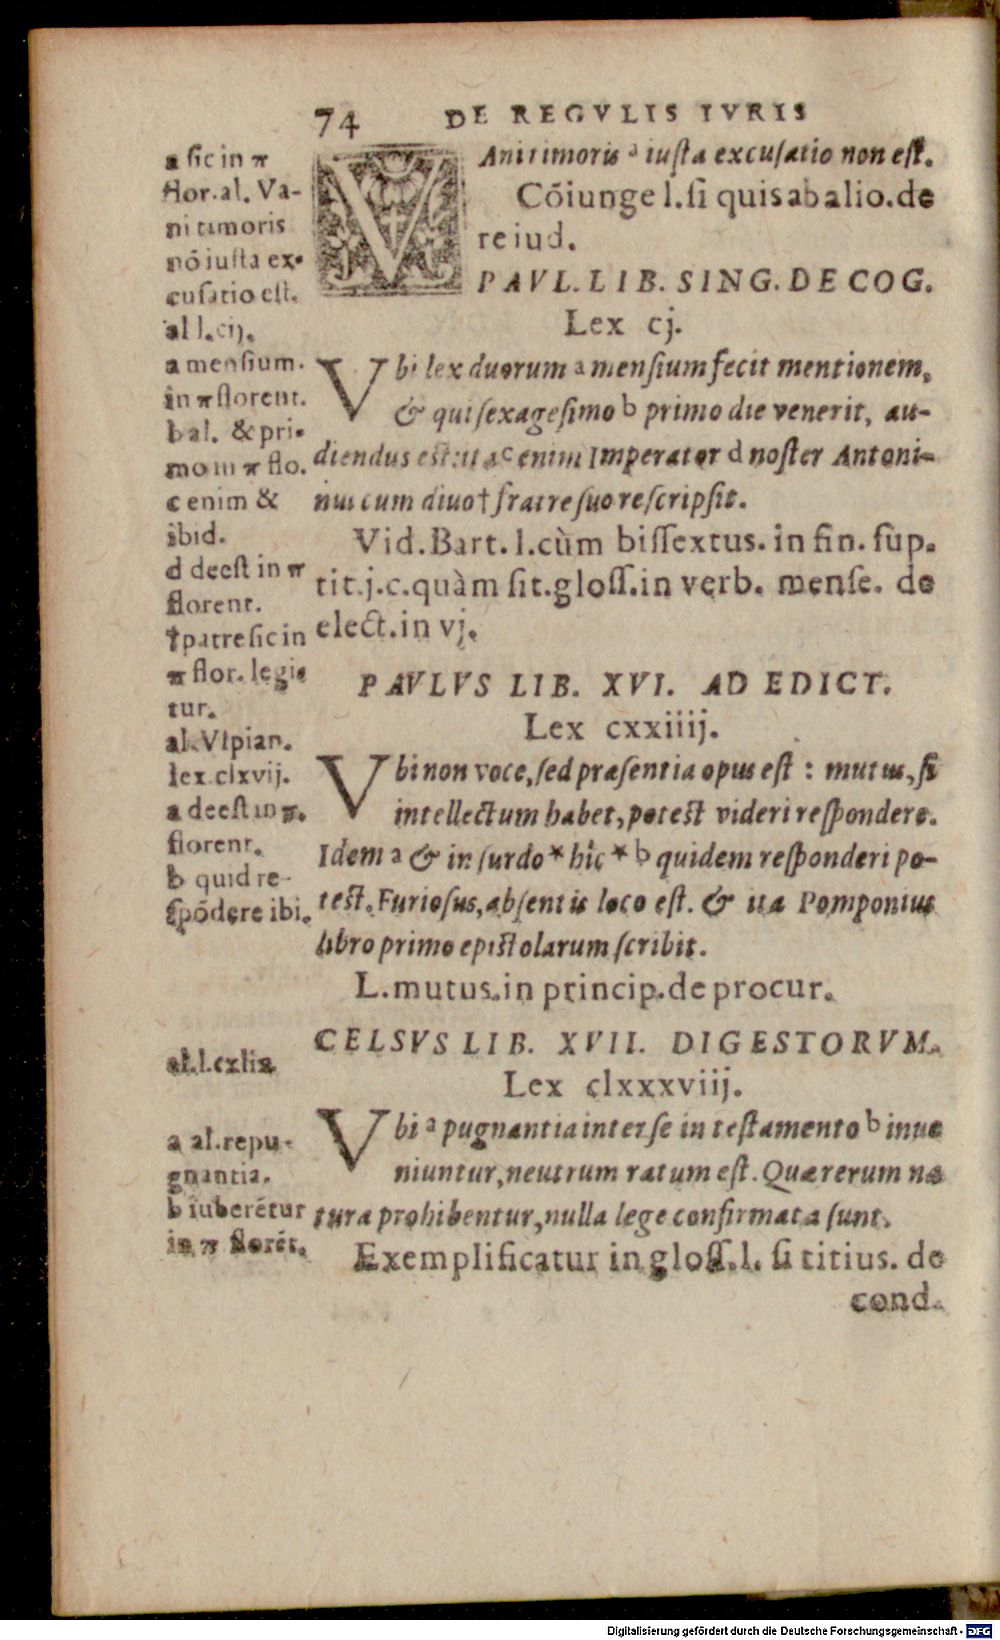 74 DE REGVLIS IVRIS
VAni timoris a iusta excusatio non est.
Cõiunge l. si quis abalio. de
re iud.
PAVL. LIB. SING. DE COG.
Lex cj.
Vbi lex duorum a mensium fecit mentionem,
& qui sexagesimo b primo die venerit, au-
diendus est: ita c enim Imperator d noster Antoni-
nus cum diuo † fratre suo rescripsit.
Vid. Bart. l. cùm bissextus. in fin. sup.
tit. j. c. quàm sit. gloss. in verb. mense. de
elect. in vj.
PAVLVS LIB. XVI. AD EDICT.
Lex cxxiiij.
Vbi non voce, sed præsentia opus est : mutus, si
intellectum habet, potest videri respondere.
Idem a & in surdo * hîc * b quidem responderi po-
test. Furiosus, absentis loco est. & ita Pomponius
libro primo epistolarum scribit.
L. mutus. in princip. de procur.
CELSVS LIB. XVII. DIGESTORVM.
Lex clxxxviij.
Vbi a pugnantia inter se in testamento b inue
niuntur, neutrum ratum est. Quæ rerum na
tura prohibentur, nulla lege confirmata sunt.
Exemplificatur in gloss. l. si titius. de
cond.
a sic in π
flor. al. Va-
ni timoris
nō iusta ex-
cusatio est.
al l. cij.
a mensium.
in π florent.
b al. & pri-
mo in π flo.
c enim &
ibid.
d deest in π
florent.
† patre sic in
π flor. legi-
tur.
al. Vlpian.
lex clxvij.
a deest in π.
florent.
b quid re-
spōdere ibi.
al. l. cxlix.
a al. repu-
gnantia.
b iuberétur
in π florét.
Digitalisierung gefördert durch die Deutsche Forschungsgemeinschaft - DFG